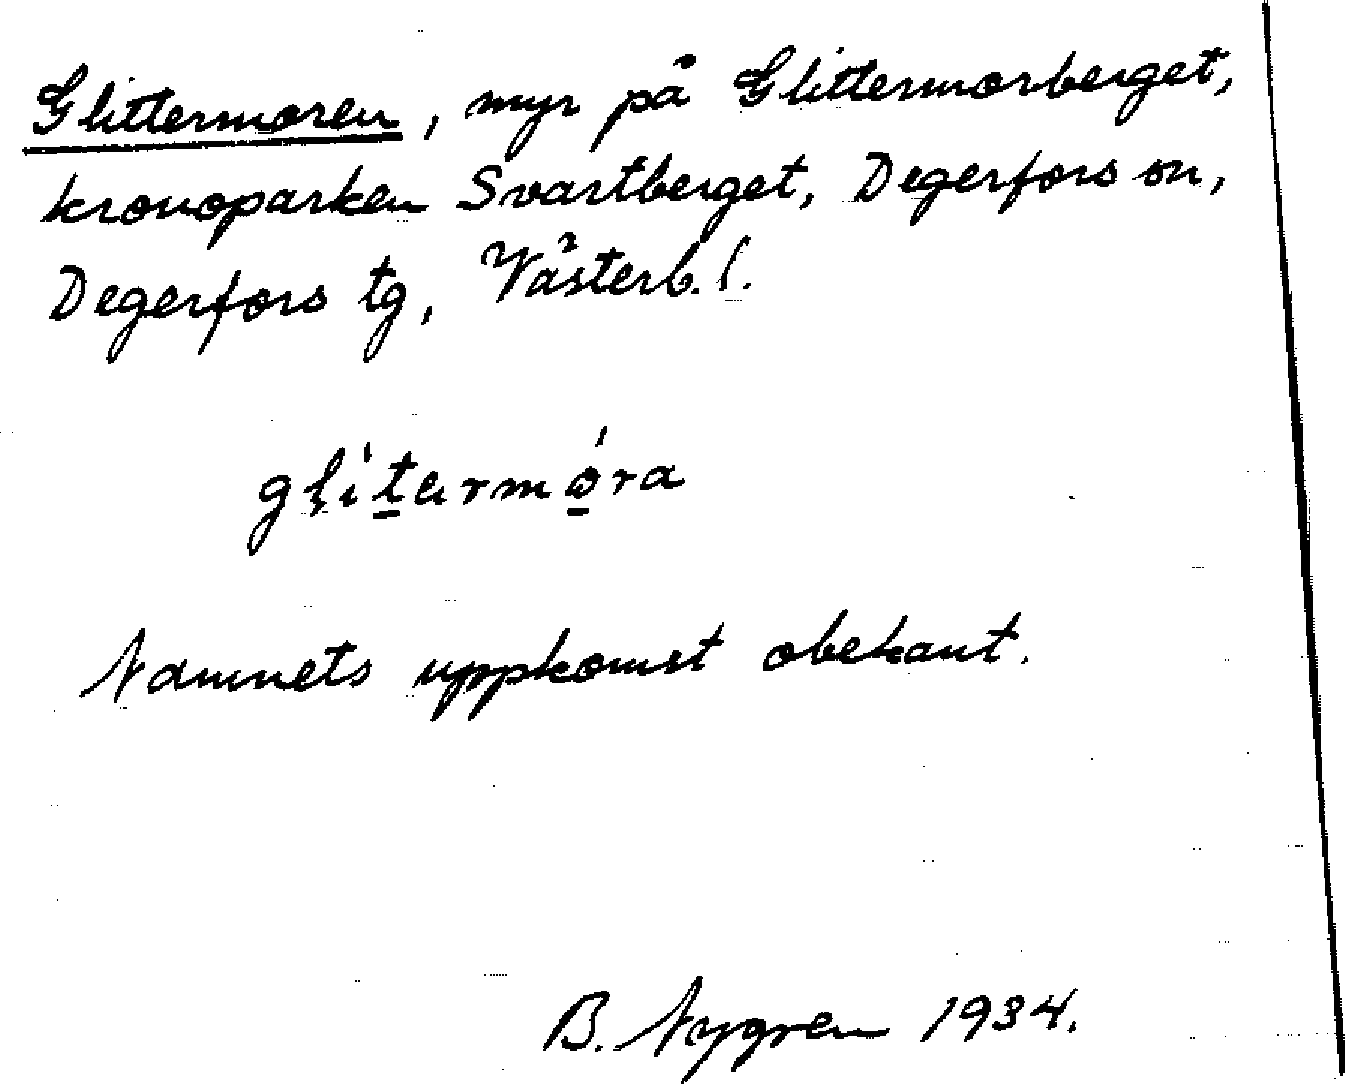 Glittermoren, myr på Glittermorberget,
kronoparken Svartberget, Degerfors sn,
Degerfors tg, Västerb. l.
glitermóra
Namnets uppkomst obekant.
B. Nygren 1934.